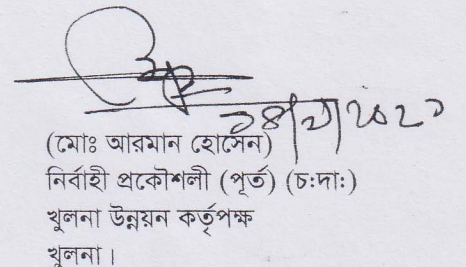 (মোঃ আরমান হোসেন)
নির্বাহী প্রকৌশলী (পূর্ত) (চ:দা:)
খুলনা উন্নয়ন কর্তৃপক্ষ
খুলনা।